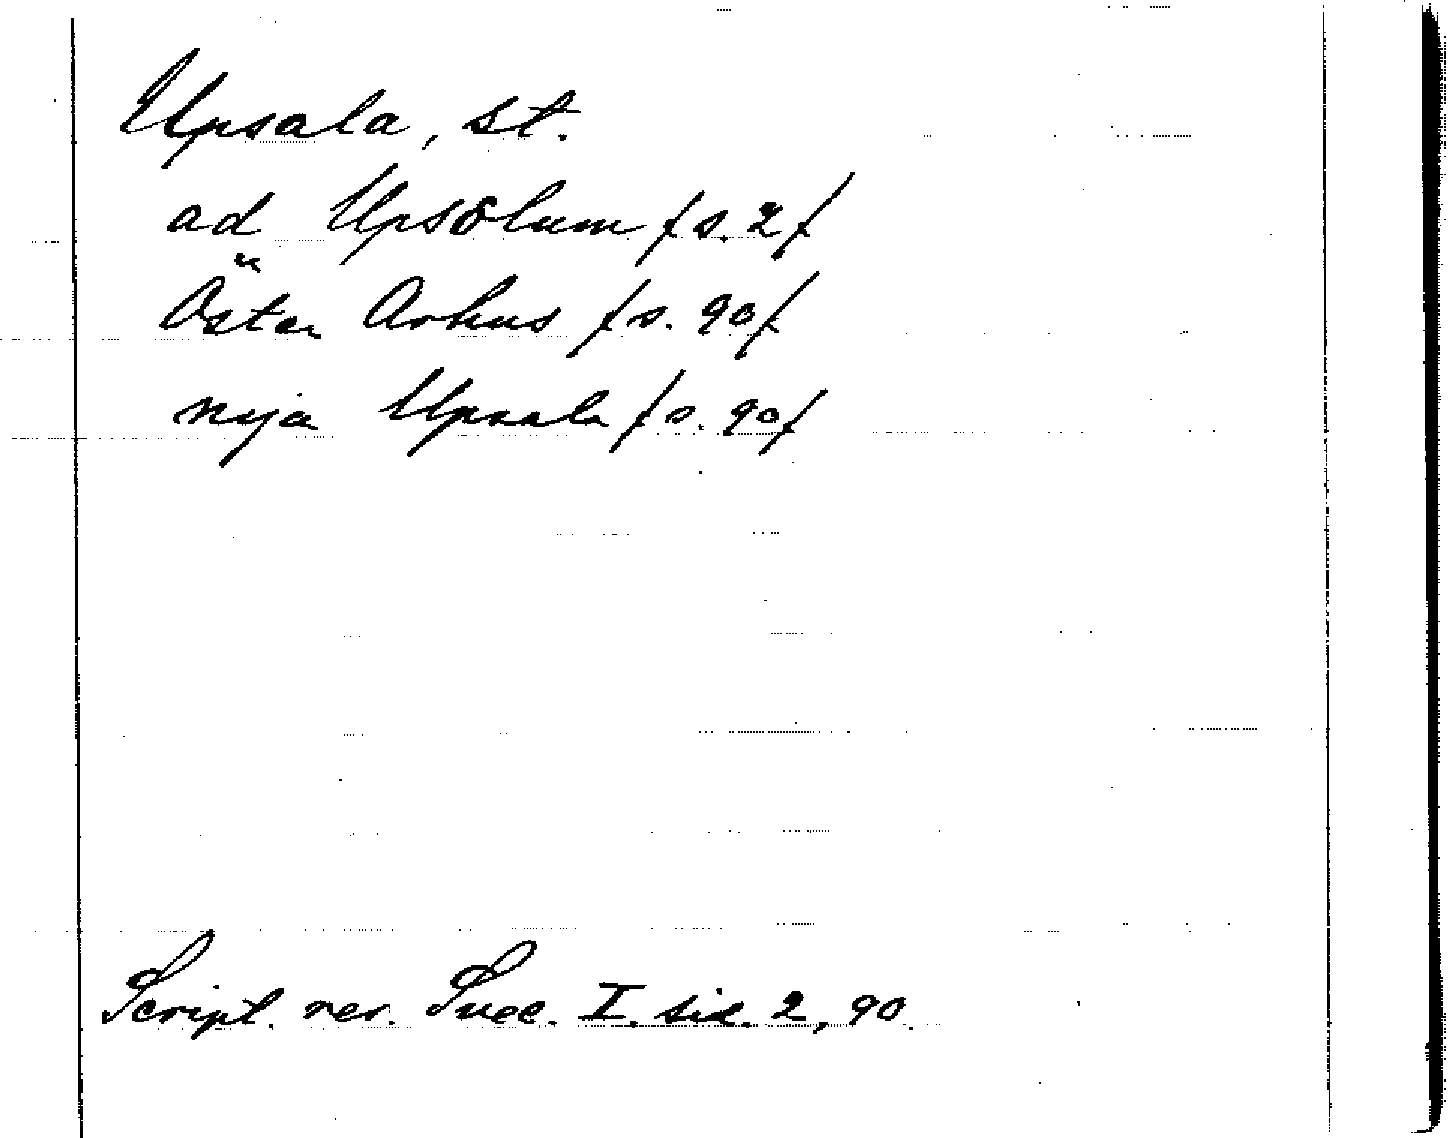 Upsala, st.
ad Upsölum /s. 2/
Öster Arhus /s. 90/
nya Upsala /s. 90/
Script. rer. Suec. I. sid. 2, 90.